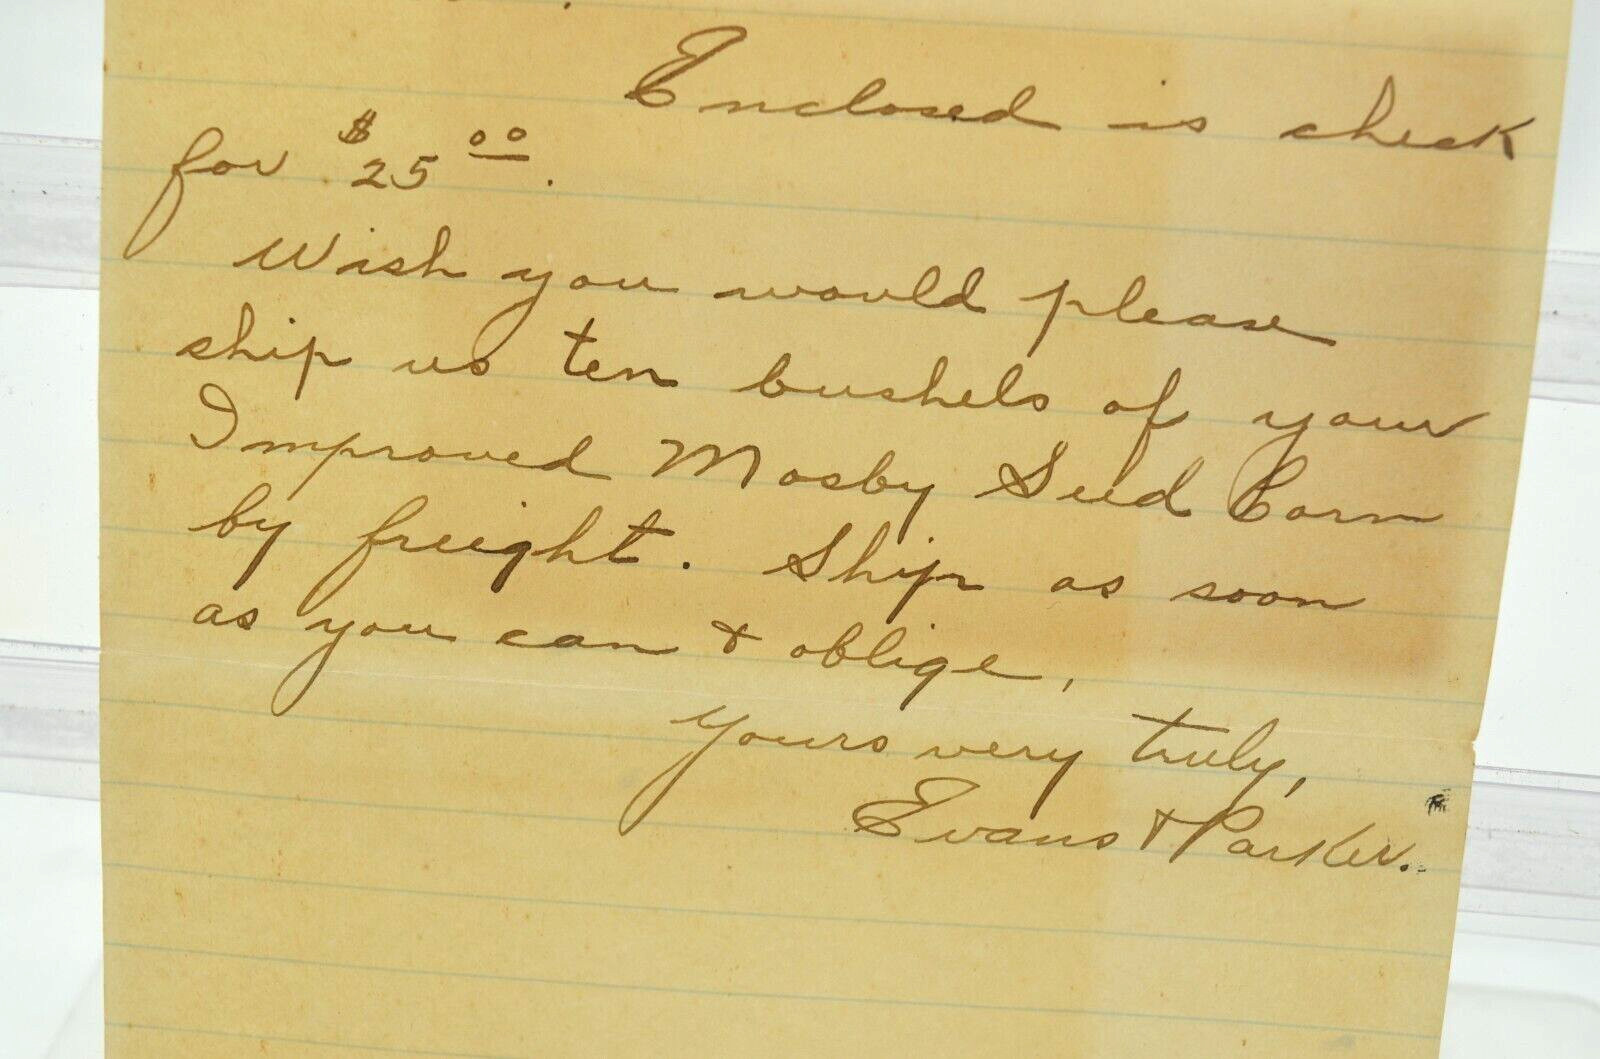 Enclosed is check
for $25 00.
Wish you would please
ship us ten bushels of your
Improved Mosby Seed Corn
by freight. Ship as soon
as you can & oblige,
Yours very truly,
Evans & Parker.